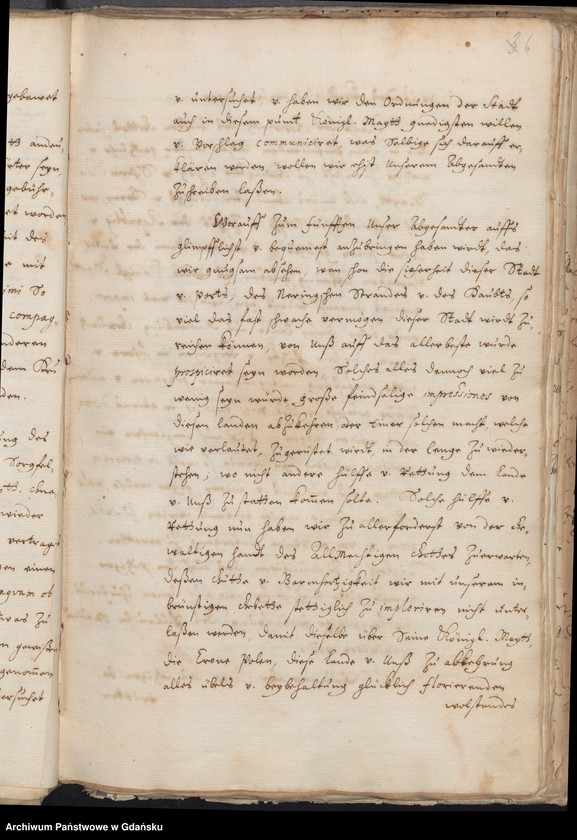 26
v. untersuchet, v. haben wir den Ordnungen der Stadt
auch in diesem punct Königl. Maytt gnedigsten willen
v. Vorschlag communiciret, was Selbige sich darauff er,
klären werden, wollen wir ehist Unserem Abgesandten
zuschreiben laßen.
Worauff zum fünfften Unser Abgesandter auffs
glimpfflichst v. bequemest anzubringen haben wirdt, das
wie gnugsam absehen, wan schon die sicherheit dieser Stadt
v. ports, des Neringschen Strandes v. des Haubts, so
viel das fast schwache vermögen dieser Stadt wirdt zu,
reichen können, von Unß auffs das allerbeste würde
prospiciret seyn worden, Solches alles dennoch viel zu
wenig seyn würde große feindselige impressiones von
diesen landen abzukehren oder Einer solchen macht, welche
wie verlautet, zugerüstet wirdt, in der lenge zu wieder,
stehen; wo nicht andere hülffe v. Rettung dem lande
v. Unß zu statten kommen solte. Solche hülffe v.
Rettung nun haben wir zu allerforderst von der Ge,
waltigen handt des AllMechtigen Gottes zuerwarten,
deßen Gütte v. Barmhertzigkeit wir mit unserem in,
brünstigen Gebethe stettiglich zu imploriren nicht unter,
laßen werden, damit dieselbe über Seine Königl. Maytt,
die Crone Polen, diese lande v. Unß zu abkehrung
alles übels v. beybehaltung glücklich florierenden
wolstandes
gebawet
worden
mit
compag,
anderen
des
Sorgfel,
wieder
vertrags
einen
was zu
genommen
ersuchet
Archiwum Państwowe w Gdańsku